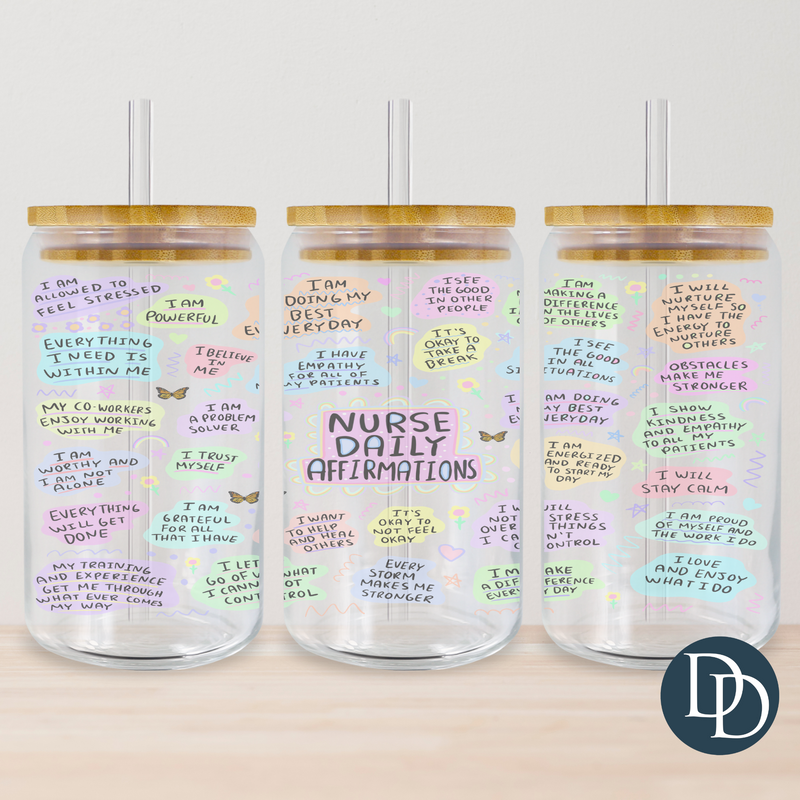 I AM
ALLOWED TO
FEEL STRESSED
I AM
POWERFUL
EVERYTHING
I NEED IS
WITHIN ME
I BELIEVE
ME
MY CO-WORKERS
ENJOY WORKING
WITH ME
I AM
A PROBLEM
SOLVER
I AM
WORTHY AND
I AM NOT
ALONE
I TRUST
MYSELF
EVERYTHING
WILL GET
DONE
I AM
GRATEFUL
FOR ALL
THAT I HAVE
MY TRAINING
AND EXPERIENCE
GET ME THROUGH
WHAT EVER COMES
MY WAY
I LET
GO OF W
I CANN
CONT
I AM
DOING MY
BEST
VERYDAY
I SEE
THE GOOD
IN OTHER
PEOPLE
IT'S
OKAY TO
TAKE A
BREAK
I HAVE
EMPATHY
FOR ALL OF
MY PATIENTS
NURSE
DAILY
AFFIRMATIONS
I WANT
TO HELP
AND HEAL
OTHERS
IT'S
OKAY TO
NOT FEEL
OKAY
I W
NOT
OVER
I CA
WHAT
OT
ROL
EVERY
STORM
MAKES ME
STRONGER
I M
A DIF
EVER
I AM
MAKING A
DIFFERENCE
IN THE LIVES
OF OTHERS
I WILL
NURTURE
MYSELF SO
I HAVE THE
ENERGY TO
NURTURE
OTHERS
I SEE
THE GOOD
IN ALL
ITUATIONS
OBSTACLES
MAKE ME
STRONGER
AM DOING
MY BEST
VERYDAY
I SHOW
KINDNESS
AND EMPATHY
TO ALL MY
PATIENTS
I AM
ENERGIZED
AND READY
TO START MY
DAY
I WILL
STAY CALM
WILL
STRESS
THINGS
N'T
ONTROL
I AM PROUD
OF MYSELF AND
THE WORK I DO
AKE
FERENCE
Y DAY
I LOVE
AND ENJOY
WHAT I DO
DD